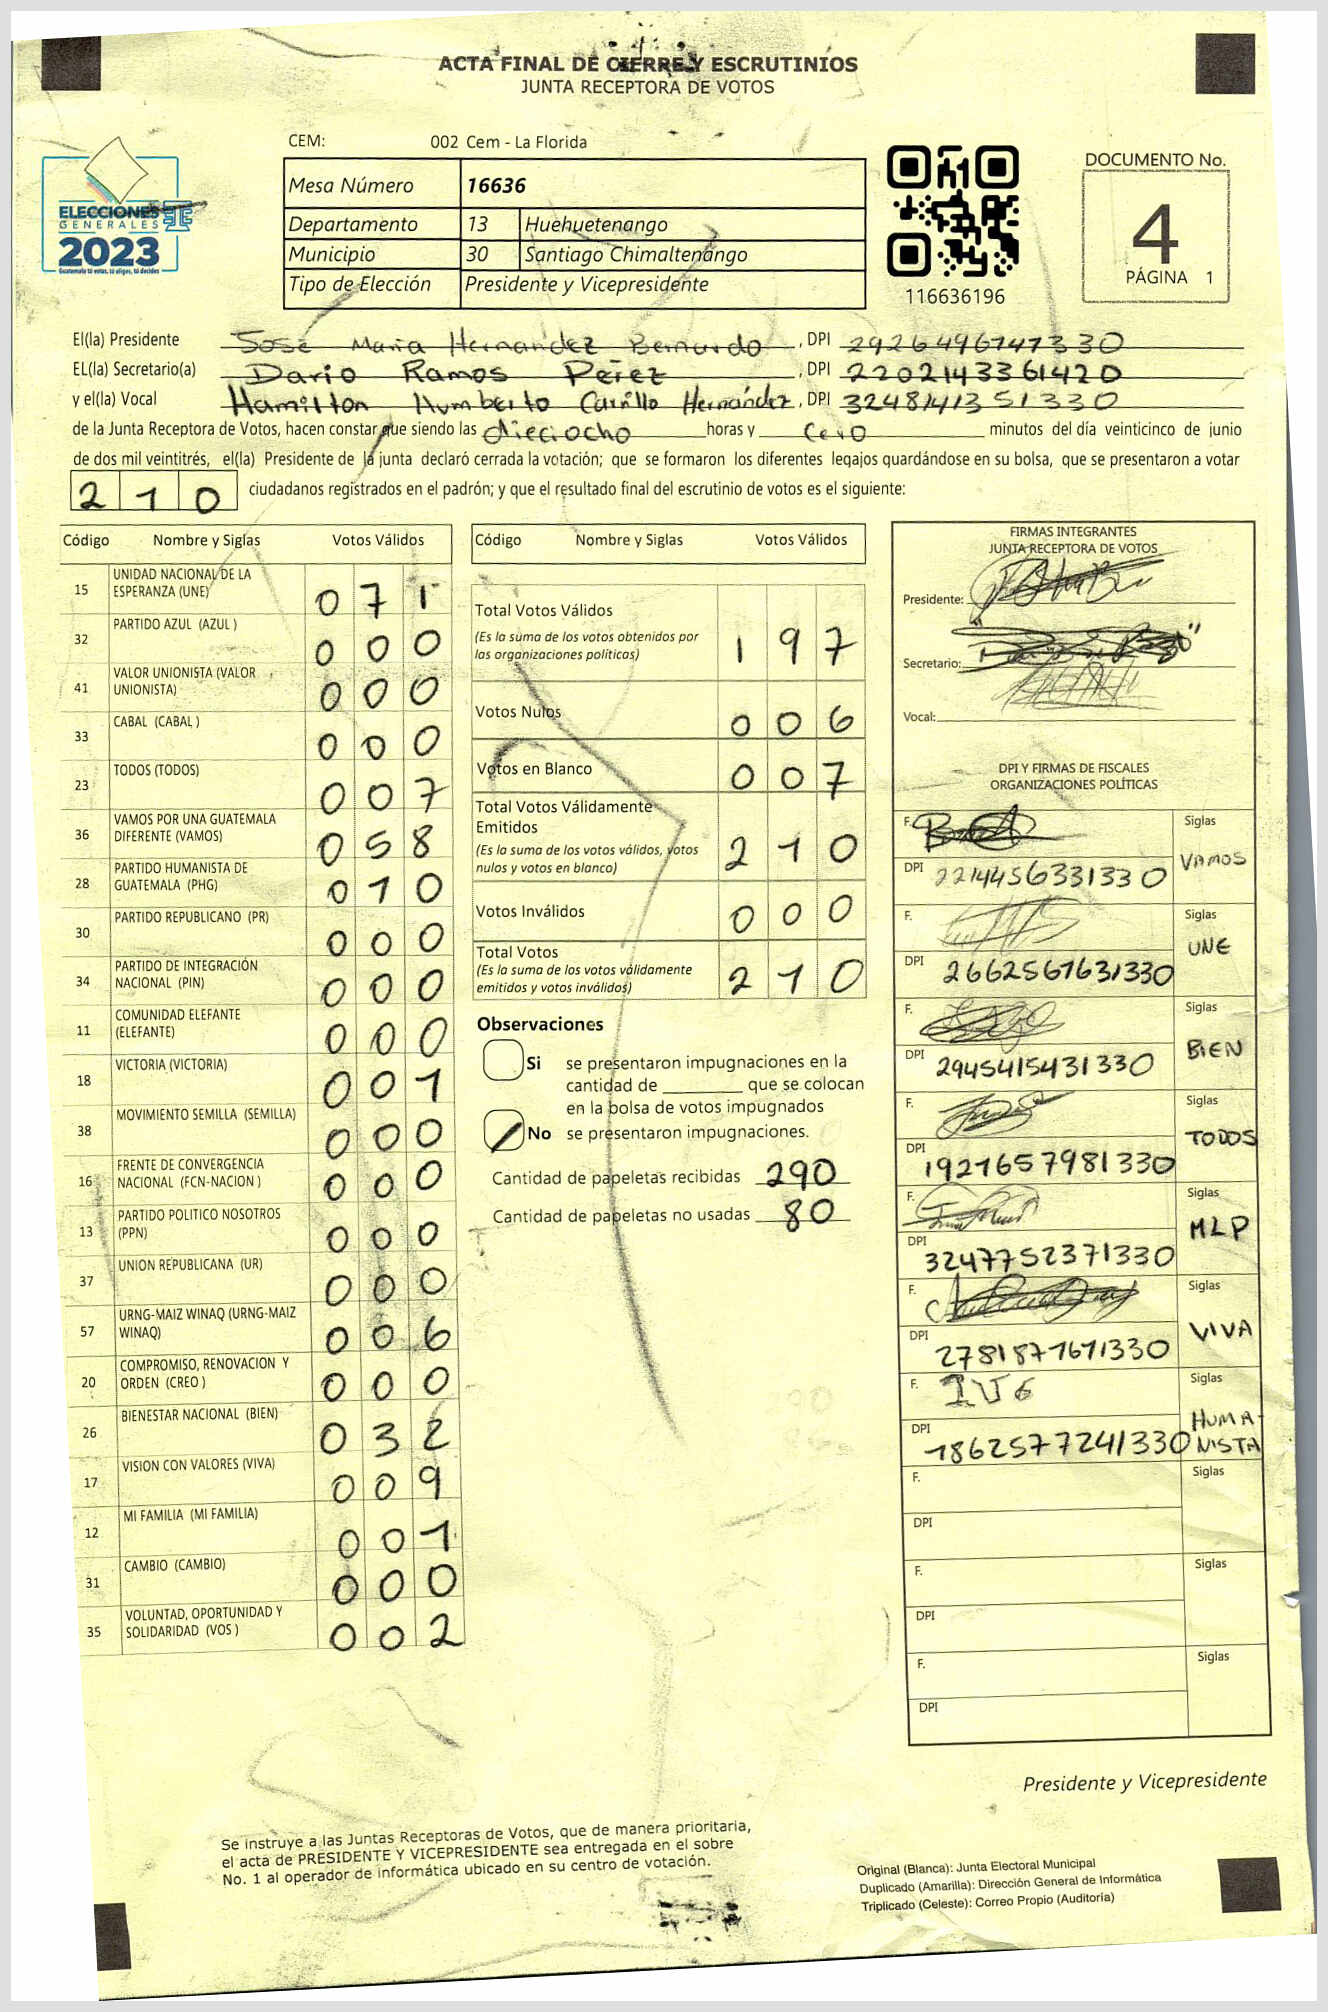 ACTA FINAL DE CIERRE Y ESCRUTINIOS
JUNTA RECEPTORA DE VOTOS
CEM: 002 Cem - La Florida
ELECCIONES
GENERALES
2023
Guatemala tú votas, tú eliges, tú decides
Mesa Número 16636
Departamento 13 Huehuetenango
Municipio 30 Santiago Chimaltenango
Tipo de Elección Presidente y Vicepresidente
116636196
DOCUMENTO No.
4
PÁGINA 1
El(la) Presidente José Maria Hernandez Bernardo, DPI 2926496747330
EL(la) Secretario(a) Dario Ramos Pérez, DPI 2202143361420
y el(la) Vocal Hamilton Humberto Carrillo Hernández, DPI 3248141351330
de la Junta Receptora de Votos, hacen constar que siendo las dieciocho horas y cero minutos del día veinticinco de junio
de dos mil veintitrés, el(la) Presidente de la junta declaró cerrada la votación; que se formaron los diferentes legajos guardándose en su bolsa, que se presentaron a votar
210 ciudadanos registrados en el padrón; y que el resultado final del escrutinio de votos es el siguiente:
Código Nombre y Siglas Votos Válidos
15 UNIDAD NACIONAL DE LA ESPERANZA (UNE) 071
32 PARTIDO AZUL (AZUL ) 000
41 VALOR UNIONISTA (VALOR UNIONISTA) 000
33 CABAL (CABAL ) 000
23 TODOS (TODOS) 007
36 VAMOS POR UNA GUATEMALA DIFERENTE (VAMOS) 058
28 PARTIDO HUMANISTA DE GUATEMALA (PHG) 010
30 PARTIDO REPUBLICANO (PR) 000
34 PARTIDO DE INTEGRACIÓN NACIONAL (PIN) 000
11 COMUNIDAD ELEFANTE (ELEFANTE) 000
18 VICTORIA (VICTORIA) 001
38 MOVIMIENTO SEMILLA (SEMILLA) 000
16 FRENTE DE CONVERGENCIA NACIONAL (FCN-NACION ) 000
13 PARTIDO POLITICO NOSOTROS (PPN) 000
37 UNION REPUBLICANA (UR) 000
57 URNG-MAIZ WINAQ (URNG-MAIZ WINAQ) 006
20 COMPROMISO, RENOVACION Y ORDEN (CREO ) 000
26 BIENESTAR NACIONAL (BIEN) 032
17 VISION CON VALORES (VIVA) 009
12 MI FAMILIA (MI FAMILIA) 001
31 CAMBIO (CAMBIO) 000
35 VOLUNTAD, OPORTUNIDAD Y SOLIDARIDAD (VOS ) 002
Código Nombre y Siglas Votos Válidos
Total Votos Válidos 197
(Es la suma de los votos obtenidos por
las organizaciones políticas)
Votos Nulos 006
Votos en Blanco 007
Total Votos Válidamente
Emitidos 210
(Es la suma de los votos válidos, votos
nulos y votos en blanco)
Votos Inválidos 000
Total Votos 210
(Es la suma de los votos válidamente
emitidos y votos inválidos)
Observaciones
Si se presentaron impugnaciones en la
cantidad de ________ que se colocan
en la bolsa de votos impugnados
No se presentaron impugnaciones.
Cantidad de papeletas recibidas 290
Cantidad de papeletas no usadas 80
FIRMAS INTEGRANTES
JUNTA RECEPTORA DE VOTOS
Presidente:
Secretario:
Vocal:
DPI Y FIRMAS DE FISCALES
ORGANIZACIONES POLÍTICAS
F. Siglas
DPI 2214456331330 VAMOS
F. Siglas
DPI 2662567631330 UNE
F. Siglas
DPI 2945415431330 BIEN
F. Siglas
DPI 1921657981330 TODOS
F. Siglas
DPI 3247752371330 MLP
F. Siglas
DPI 2781871671330 VIVA
F. Siglas
DPI 1862577241330 HUMA-
NISTA
F. Siglas
DPI
F. Siglas
DPI
F. Siglas
DPI
Presidente y Vicepresidente
Se instruye a las Juntas Receptoras de Votos, que de manera prioritaria,
el acta de PRESIDENTE Y VICEPRESIDENTE sea entregada en el sobre
No. 1 al operador de informática ubicado en su centro de votación.
Original (Blanca): Junta Electoral Municipal
Duplicado (Amarilla): Dirección General de Informática
Triplicado (Celeste): Correo Propio (Auditoria)